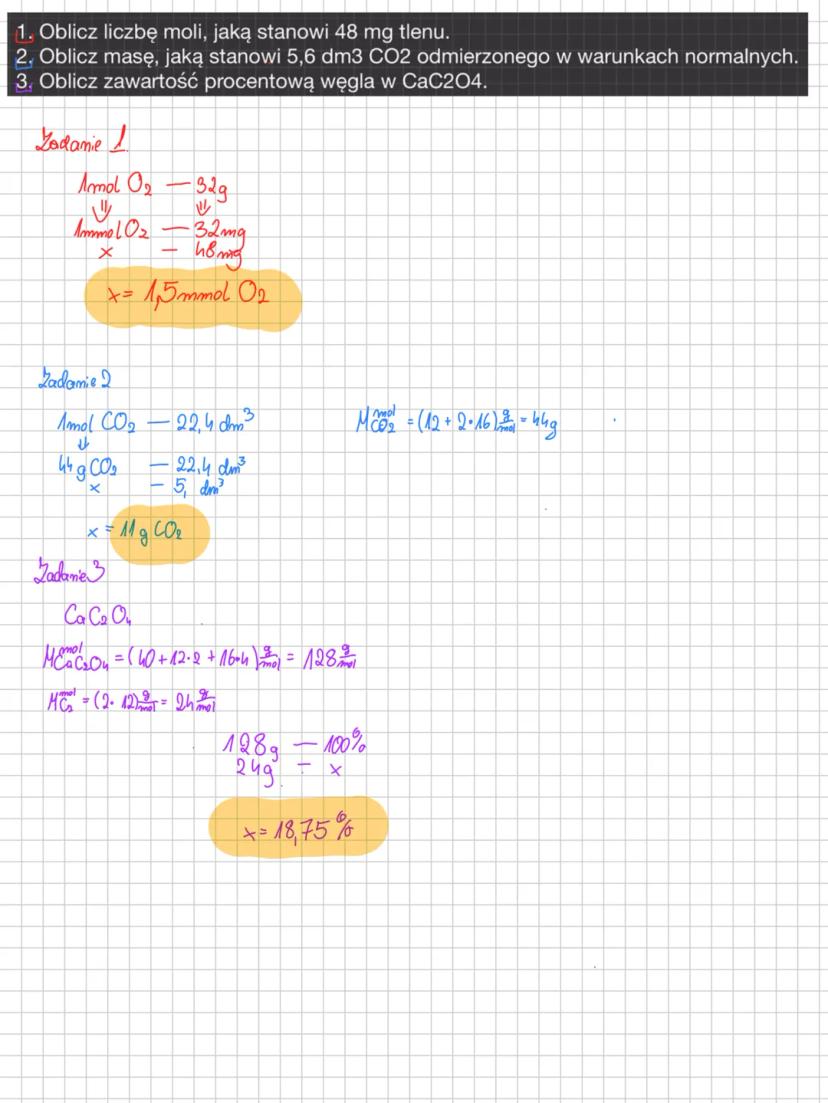 1. Oblicz liczbę moli, jaką stanowi 48 mg tlenu.
2. Oblicz masę, jaką stanowi 5,6 dm3 CO2 odmierzonego w warunkach normalnych.
3. Oblicz zawartość procentową węgla w CaC2O4.
Zadanie 1
1mol O₂ — 32g
⇓ ⇓
1mmol O₂ — 32mg
x — 48mg
x = 1,5mmol O₂
Zadanie 2
1mol CO₂ — 22,4 dm³
⇓
44g CO₂ — 22,4 dm³
x — 5, dm³
x = 11g CO₂
M mol CO₂ = (12 + 2·16) g/mol = 44g
Zadanie 3
CaC₂O₄
M mol CaC₂O₄ = (40 + 12·2 + 16·4) g/mol = 128 g/mol
M mol C₂ = (2·12) g/mol = 24 g/mol
128g — 100%
24g — x
x = 18,75%